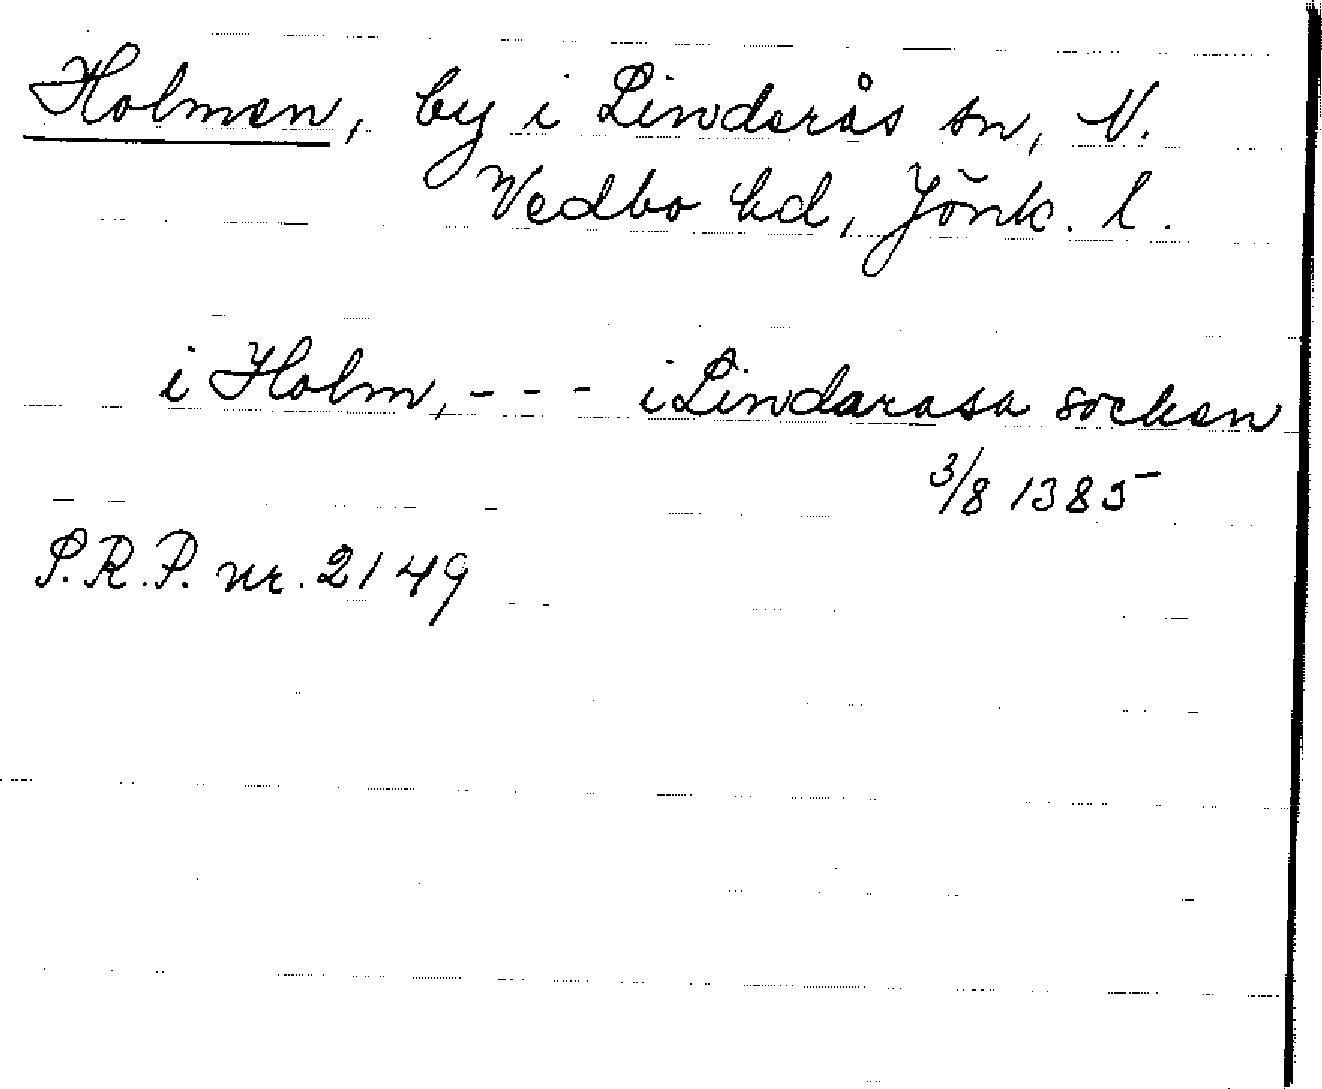 Holmen, by i Linderås sn, N.
Vedbo hd, Jönk. l.
i Holm, - - - i Lindarasa socken
3/8 1385
S.R.P. nr. 2149